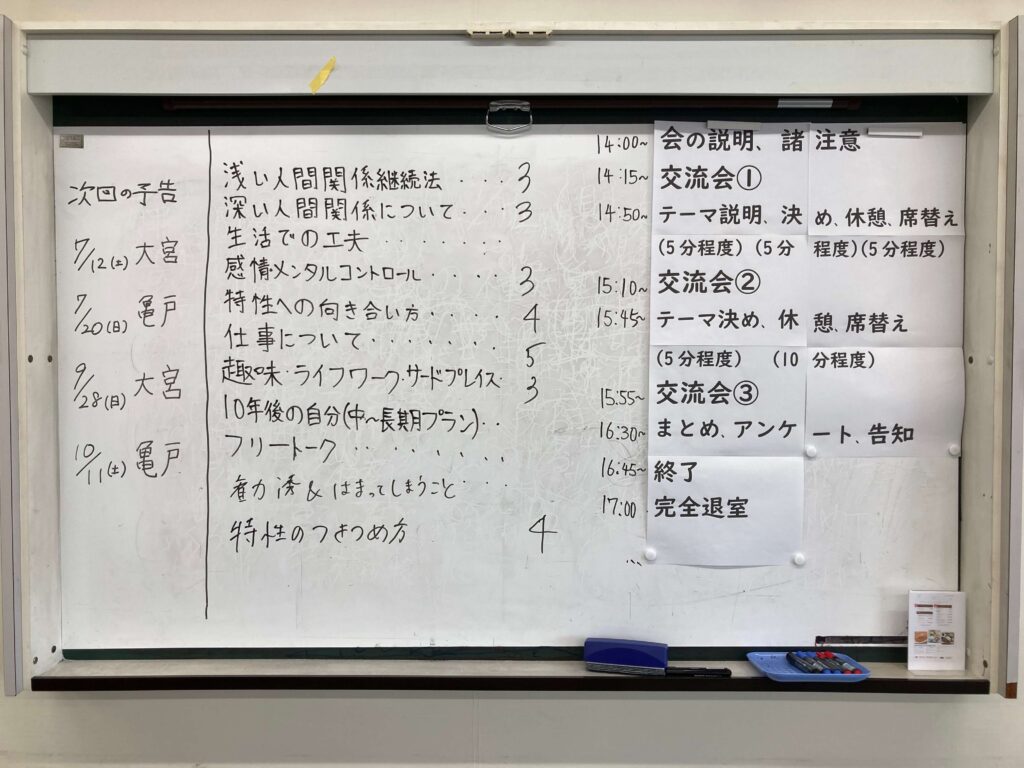 次回の予告
7/12(土) 大宮
7/20(日) 亀戸
9/28(日) 大宮
10/11(土) 亀戸
浅い人間関係継続法・・・3
深い人間関係について・・・3
生活での工夫・・・・・・・
感情メンタルコントロール・・・・3
特性への向き合い方・・・・4
仕事について・・・・・・・5
趣味・ライフワーク・サードプレイス・3
10年後の自分(中〜長期プラン)・・
フリートーク・・・・・・・
&はまってしまうこと・・・
特性のつきつめ方 4
14:00~ 会の説明、諸注意
14:15~ 交流会①
14:50~ テーマ説明、決め、休憩、席替え
(5分程度)(5分程度)(5分程度)
15:10~ 交流会②
15:45~ テーマ決め、休憩、席替え
(5分程度) (10分程度)
15:55~ 交流会③
16:30~ まとめ、アンケート、告知
16:45~ 終了
17:00 完全退室